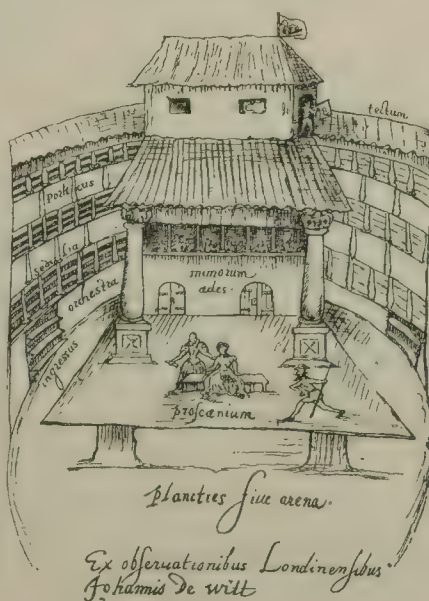 tectum
porticus
sedilia
orchestra
mimorum
ædes.
ingressus
proscænium
Planities ſiue arena.
Ex obſeruationibus Londinenſibus
Johannis De witt